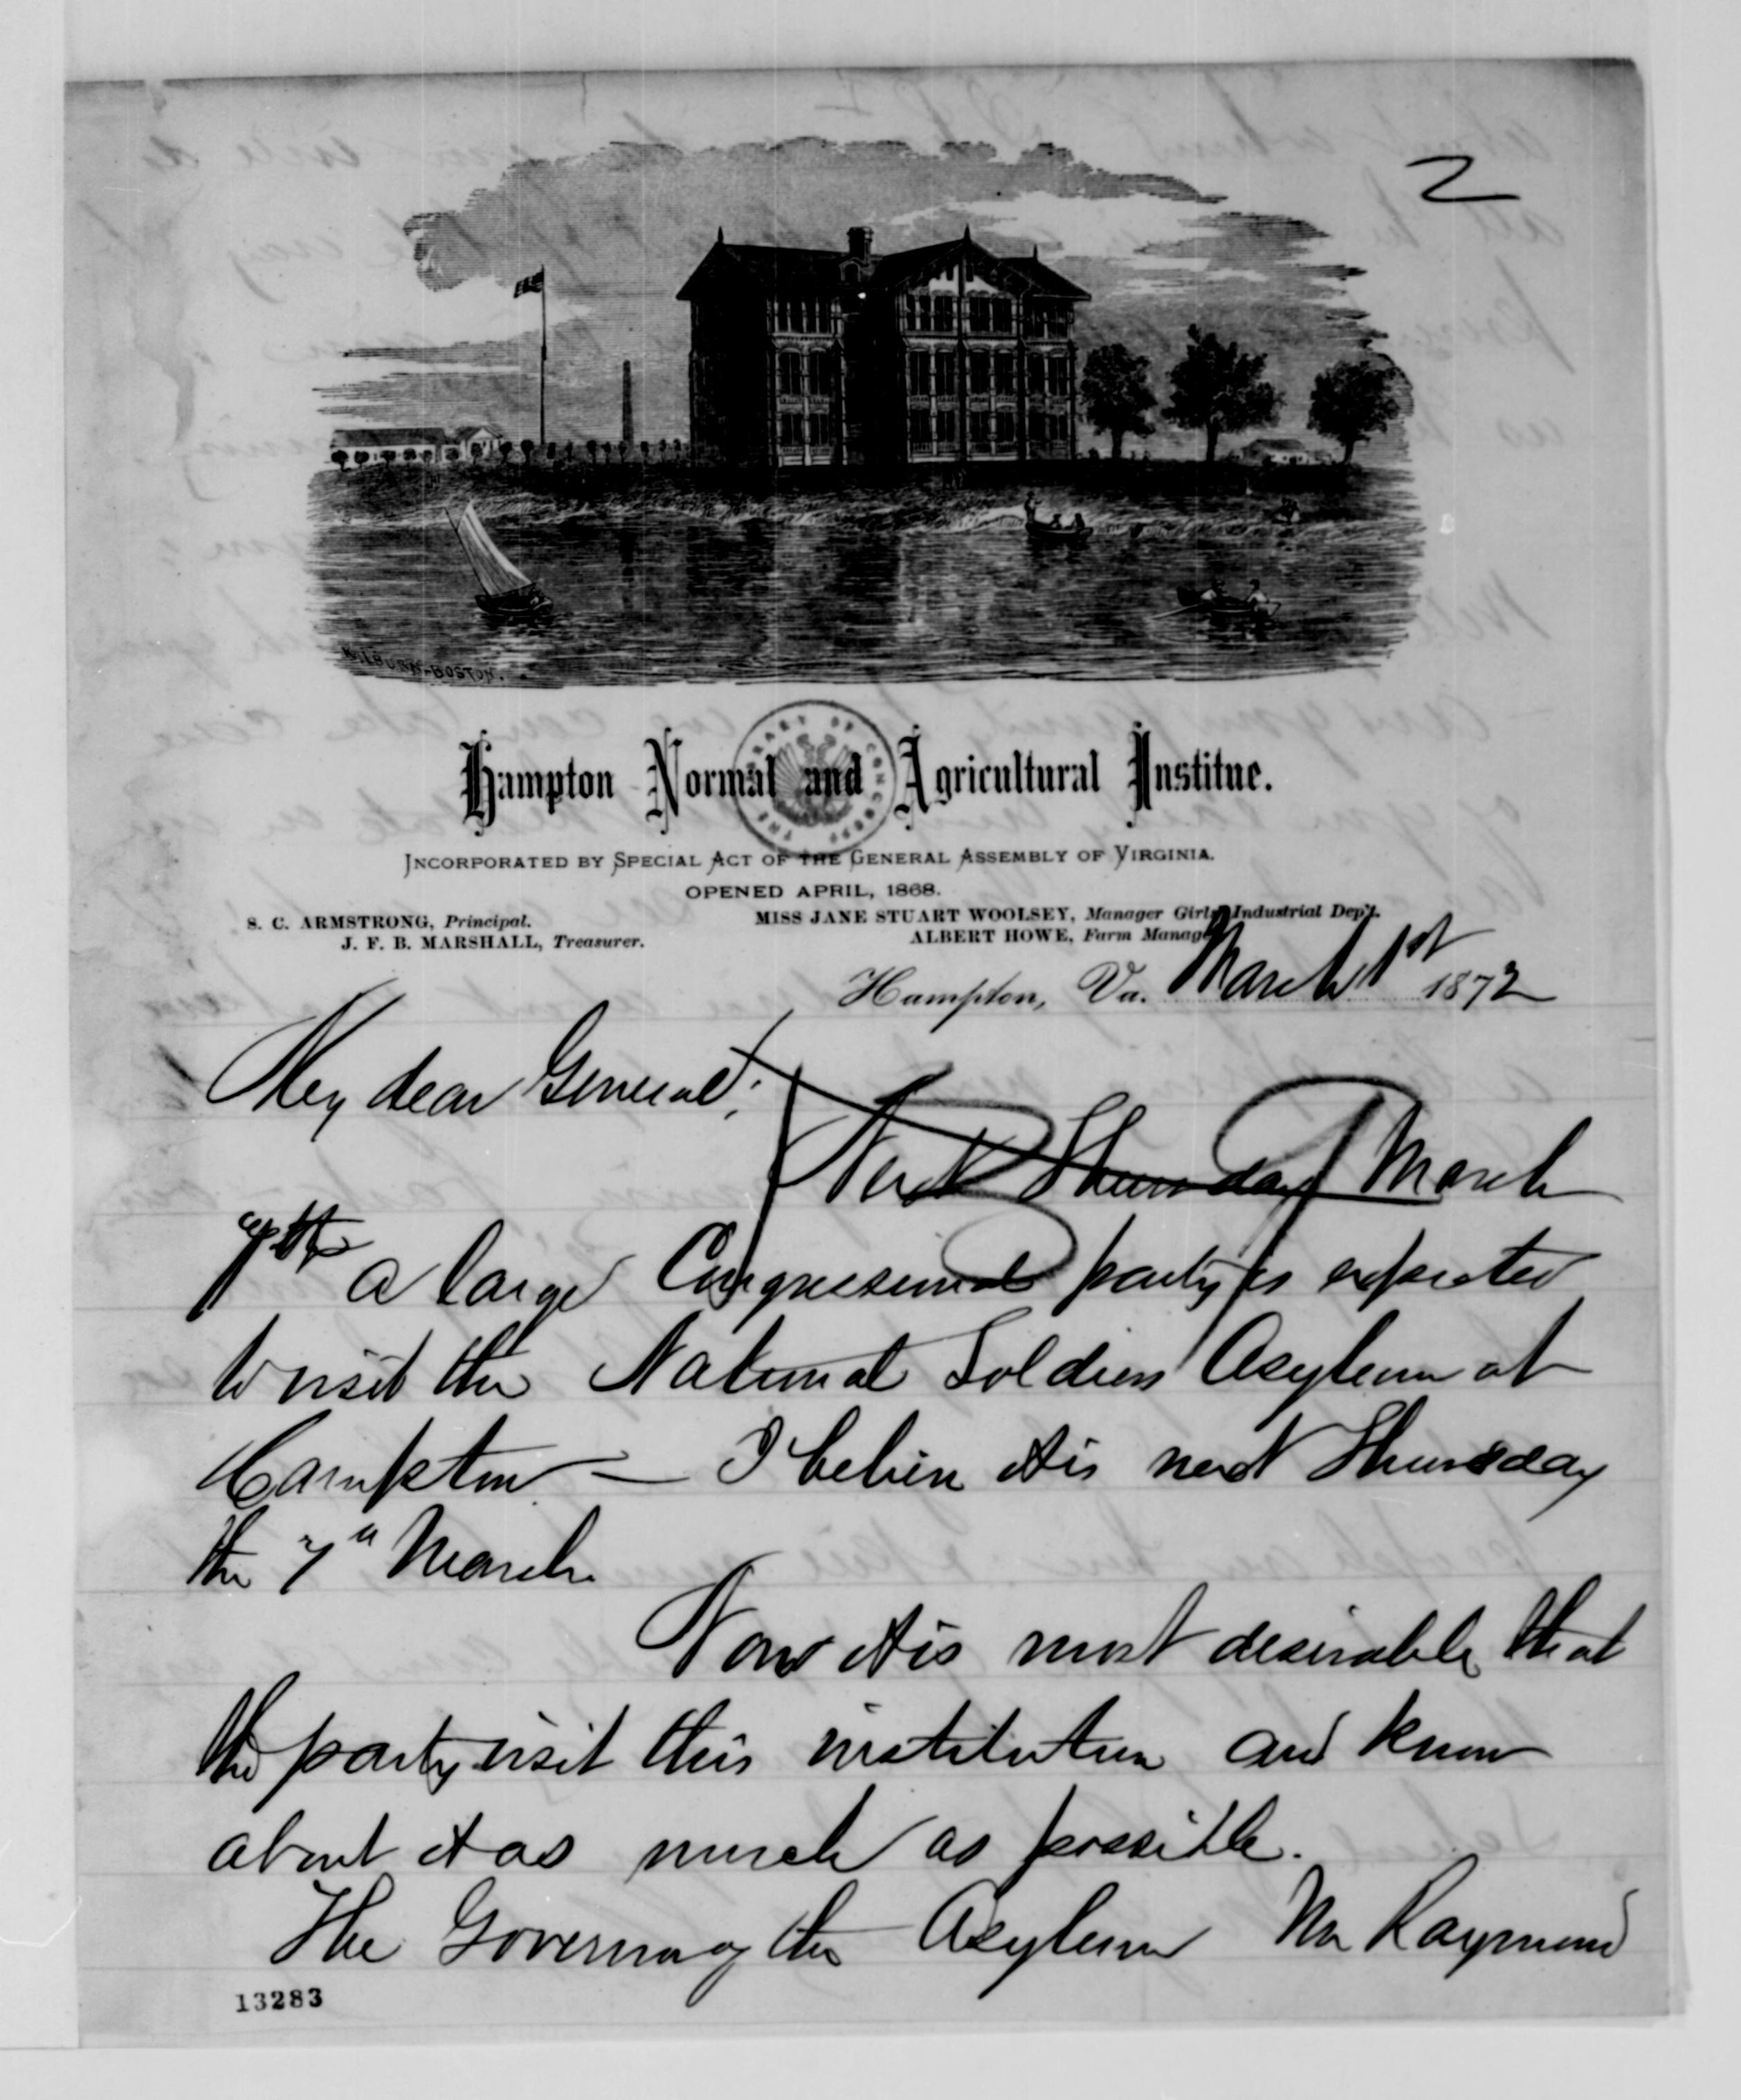 2
KILBURN-BOSTON.
Hampton Normal and Agricultural Institue.
THE LIBRARY OF CONGRESS
INCORPORATED BY SPECIAL ACT OF THE GENERAL ASSEMBLY OF VIRGINIA.
OPENED APRIL, 1868.
S. C. ARMSTRONG, Principal.
J. F. B. MARSHALL, Treasurer.
MISS JANE STUART WOOLSEY, Manager Girls Industrial Dep't.
ALBERT HOWE, Farm Manager
Hampton, Va. March 1st 1872
My dear General;
Next Thursday March
7th a large Congressional party is expected
to visit the National Soldiers Asylum at
Hampton — I believe it is next Thursday
the 7th March.
Now it is most desirable that
the party visit this institution and know
about it as much as possible.
The Governor of the Asylum Mr Raymond
13283